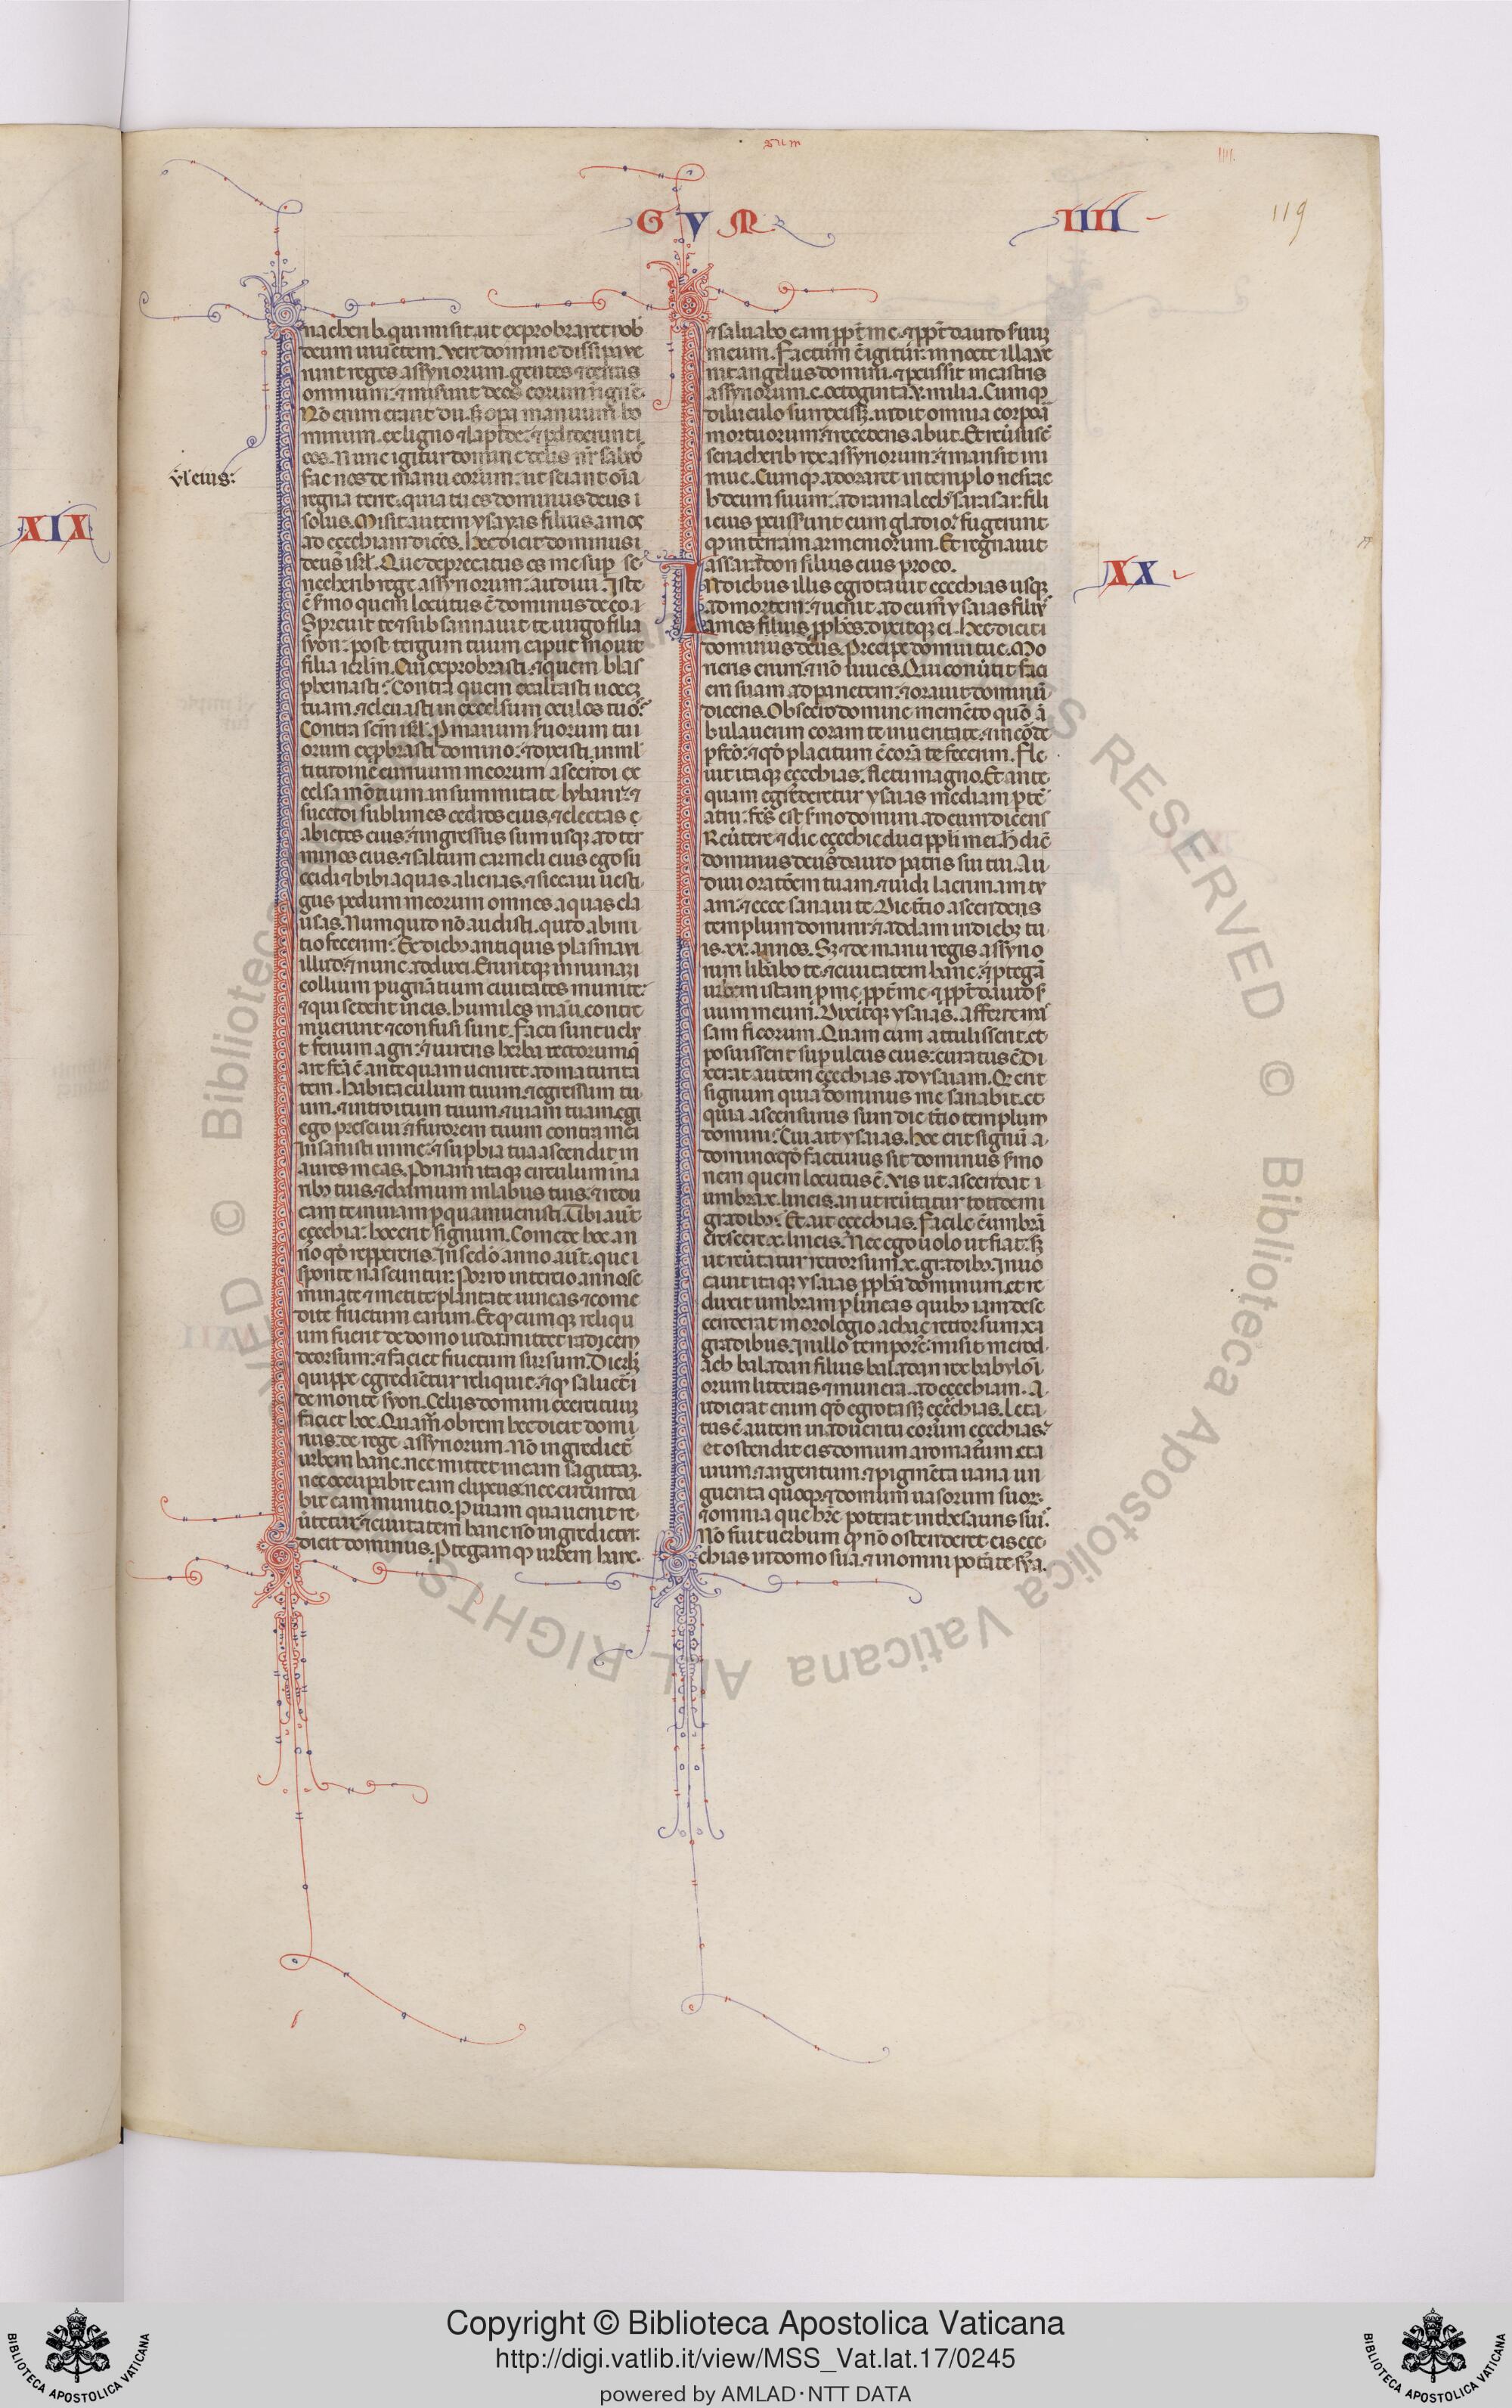 sum
GVM
IIII
119
nacherib. qui misit. ut exprobraret nob
deum uiuētem. Vere domine dissipaue
runt reges assyriorum. gentes ⁊ terras
omnium: ⁊ miserunt deos eorum ī igne.
Nō enim erant dii. s; opa manuum ho
minum. ex ligno ⁊ lapide: ⁊ pdiderunt
eos. Nunc igitur domine deus nr̄ saluo
ul eius:
fac nos de manu eorum: ut sciant oīa
regna terre. quia tu es dominus deus
XIX
solus. Misit autem ysayas filius amos
ad eçechiam dicēs. Hec dicit dominus
deus isrl̄. Que deprecatus es me sup se
nacherib rege assyriorum: audiui. Iste
ē s̄mo quem locutus ē dominus de eo.
Spreuit te ⁊ subsannauit te uirgo filia
syon: post tergum tuum caput mouit
filia ierl̄m. Cui exprobrasti. ⁊ quem blas
phemasti: Contra quem exaltasti uocē
tuam. ⁊ eleuasti in excelsum oculos tuos:
Contra scm̄ isrl̄. P manum s̄uorum tu
orum exprobrasti domino: ⁊ dixisti. in ml
titudine curruum meorum ascendi ex
celsa mōtium. in summitate lybani: ⁊
succidi sublimes cedros eius. ⁊ electas
abietes eius: ⁊ ingressus sum usq; ad ter
minos eius. ⁊ saltum carmeli eius ego su
ccidi ⁊ bibi aquas alienas. ⁊ siccaui uesti
giis pedum meorum omnes aquas cla
usas. Numquid nō audisti. quid ab ini
tio fecerim: Ex dieb; antiquis plasmaui
illud. ⁊ nunc adduxi. Eruntq; in ruinam
collium pugnātium ciuitates munite:
⁊ qui sedent in eis. humiles manu. contre
muerunt ⁊ confusi sunt. Facti sunt uelu
t fenum agri: ⁊ uirens herba tectorum. q
are fcā ē antequam ueniret ad maturita
tem. Habitaculum tuum. ⁊ egressum tu
um. ⁊ introitum tuum. ⁊ uiam tuam. ego
ego presciui. ⁊ furorem tuum contra me.
Insanisti in me. ⁊ supbia tua ascendit in
aures meas. Ponam itaq; circulum in na
rib; tuis. ⁊ chamum in labiis tuis. ⁊ redu
cam te in uiam p quam uenisti. Tibi aūt
eçechia: hoc erit signum. Comede hoc an
no q̄d reppereris. In scdō anno aūt. que
sponte nascuntur: Porro in tercio anno. se
minate ⁊ metite. plantate uineas. ⁊ come
dite fructum earum. Et q̄cumq; reliqu
um fuerit de domo iuda. mittet radicem
deorsum: ⁊ faciet fructum sursum. De ierl̄m
quippe egredientur reliquie. ⁊ q̄ saluetur
de monte syon. Celus domini exercituum
faciet hoc. Quam obrem hec dicit domi
nus. de rege assyriorum. Nō ingrediet
urbem hanc. nec mittet in eam sagittam.
nec occupabit eam clipeus. nec circumda
bit eam munitio. P uiam qua uenit re
uertetur. ⁊ ciuitatem hanc nō ingredietur.
dicit dominus. Ptegamq; urbem hanc.
⁊ saluabo eam ppt me. ⁊ ppt dauid s̄uum
meum. Factum ē igitur: in nocte illa ue
nit angelus domini. ⁊ pcussit in castris
assyriorum. c. octoginta. v. milia. Cumq;
diluculo surrexiss;. uidit omnia corpora
mortuorum: ⁊ recedens abiit. Et reuersus ē
senacherib rex assyriorum: ⁊ mansit in ni
niue. Cumq; adoraret in templo nesrac
h deum suum: adramalech ⁊ sarasar. fili
i eius pcusserunt eum gladio. ⁊ fugerunt
q; in terram armeniorum. Et regnauit
assaraddon filius eius pro eo.
XX
In diebus illis egrotauit eçechias usq;
ad mortem: ⁊ uenit ad eum ysaias filius
amos filius pphēs. dixitq; ei. Hec dicit
dominus deus. Precipe domui tue. Mo
rieris enim. ⁊ nō uiues. Qui conuertit faci
em suam ad parietem. ⁊ orauit dominū
dicens. Obsecro domine memēto quō ā
bulauerim coram te in ueritate. ⁊ in corde
pfcō: ⁊ q̄d placitum ē corā te fecerim. Fle
uit itaq; eçechias. fletu magno. Et ante
quam egrederetur ysaias mediam ptē
atrii: fcs̄ est s̄mo domini ad eum dicens
Reuertere. ⁊ dic eçechie duci ppli mei. H̄ dic̄
dominus deus dauid patris sui tui. Au
diui oratōem tuam. ⁊ uidi lacrimam tu
am: ⁊ ecce sanaui te. Die tercio ascendens
templum domini: ⁊ addam in dieb; tu
is. xv. annos. S; ⁊ de manu regis assyrio
rum libabo te. ⁊ ciuitatem hanc: ⁊ ptegam
urbem istam p me. ppt me. ⁊ ppt dauid s̄
uum meum. Dixitq; ysaias. Afferte mas
sam ficorum. Quam cum attulissent. et
posuissent sup ulcus eius: curatus ē. Di
xerat autem eçechias ad ysaiam. Q̄ erit
signum quia dominus me sanabit. et
quia ascensurus sum die tercio templum
domini: Cui ait ysaias. Hoc erit signū a
domino. q̄d facturus sit dominus s̄mo
nem quem locutus ē. Vis ut ascendat
umbra. x. lineis. an ut reuertatur totidem
gradib;. Et ait eçechias. Facile ē umbrā
crescere. x. lineis. Nec ego uolo ut fiat: s;
ut reuertatur retrorsum. x. gradib;. Inuo
cauit itaq; ysaias pphā dominum. et re
duxit umbram p lineas quib; iam desc
cenderat in orologio achac retrorsum. x.
gradibus. In illo tempore. misit merod
ach baladan filius baladan rex babyloni
orum litteras ⁊ munera. ad eçechiam. A
udierat enim q̄d egrotass; eçechias. Leta
tus ē autem in aduentu eorum eçechias:
et ostendit eis domum aromatum. et a
urum. ⁊ argentum. ⁊ pigmēta uaria. un
guenta quoq;. ⁊ domum uasorum suor.
⁊ omnia que hre poterat in thesauris suis.
Nō fuit uerbum q̄ nō ostenderet eis eçe
chias in domo sua. ⁊ in omni potāte sua.
Copyright © Biblioteca Apostolica Vaticana
http://digi.vatlib.it/view/MSS_Vat.lat.17/0245
powered by AMLAD·NTT DATA
BIBLIOTECA APOSTOLICA VATICANA
BIBLIOTECA APOSTOLICA VATICANA
© Biblioteca Apostolica Vaticana ALL RIGHTS RESERVED